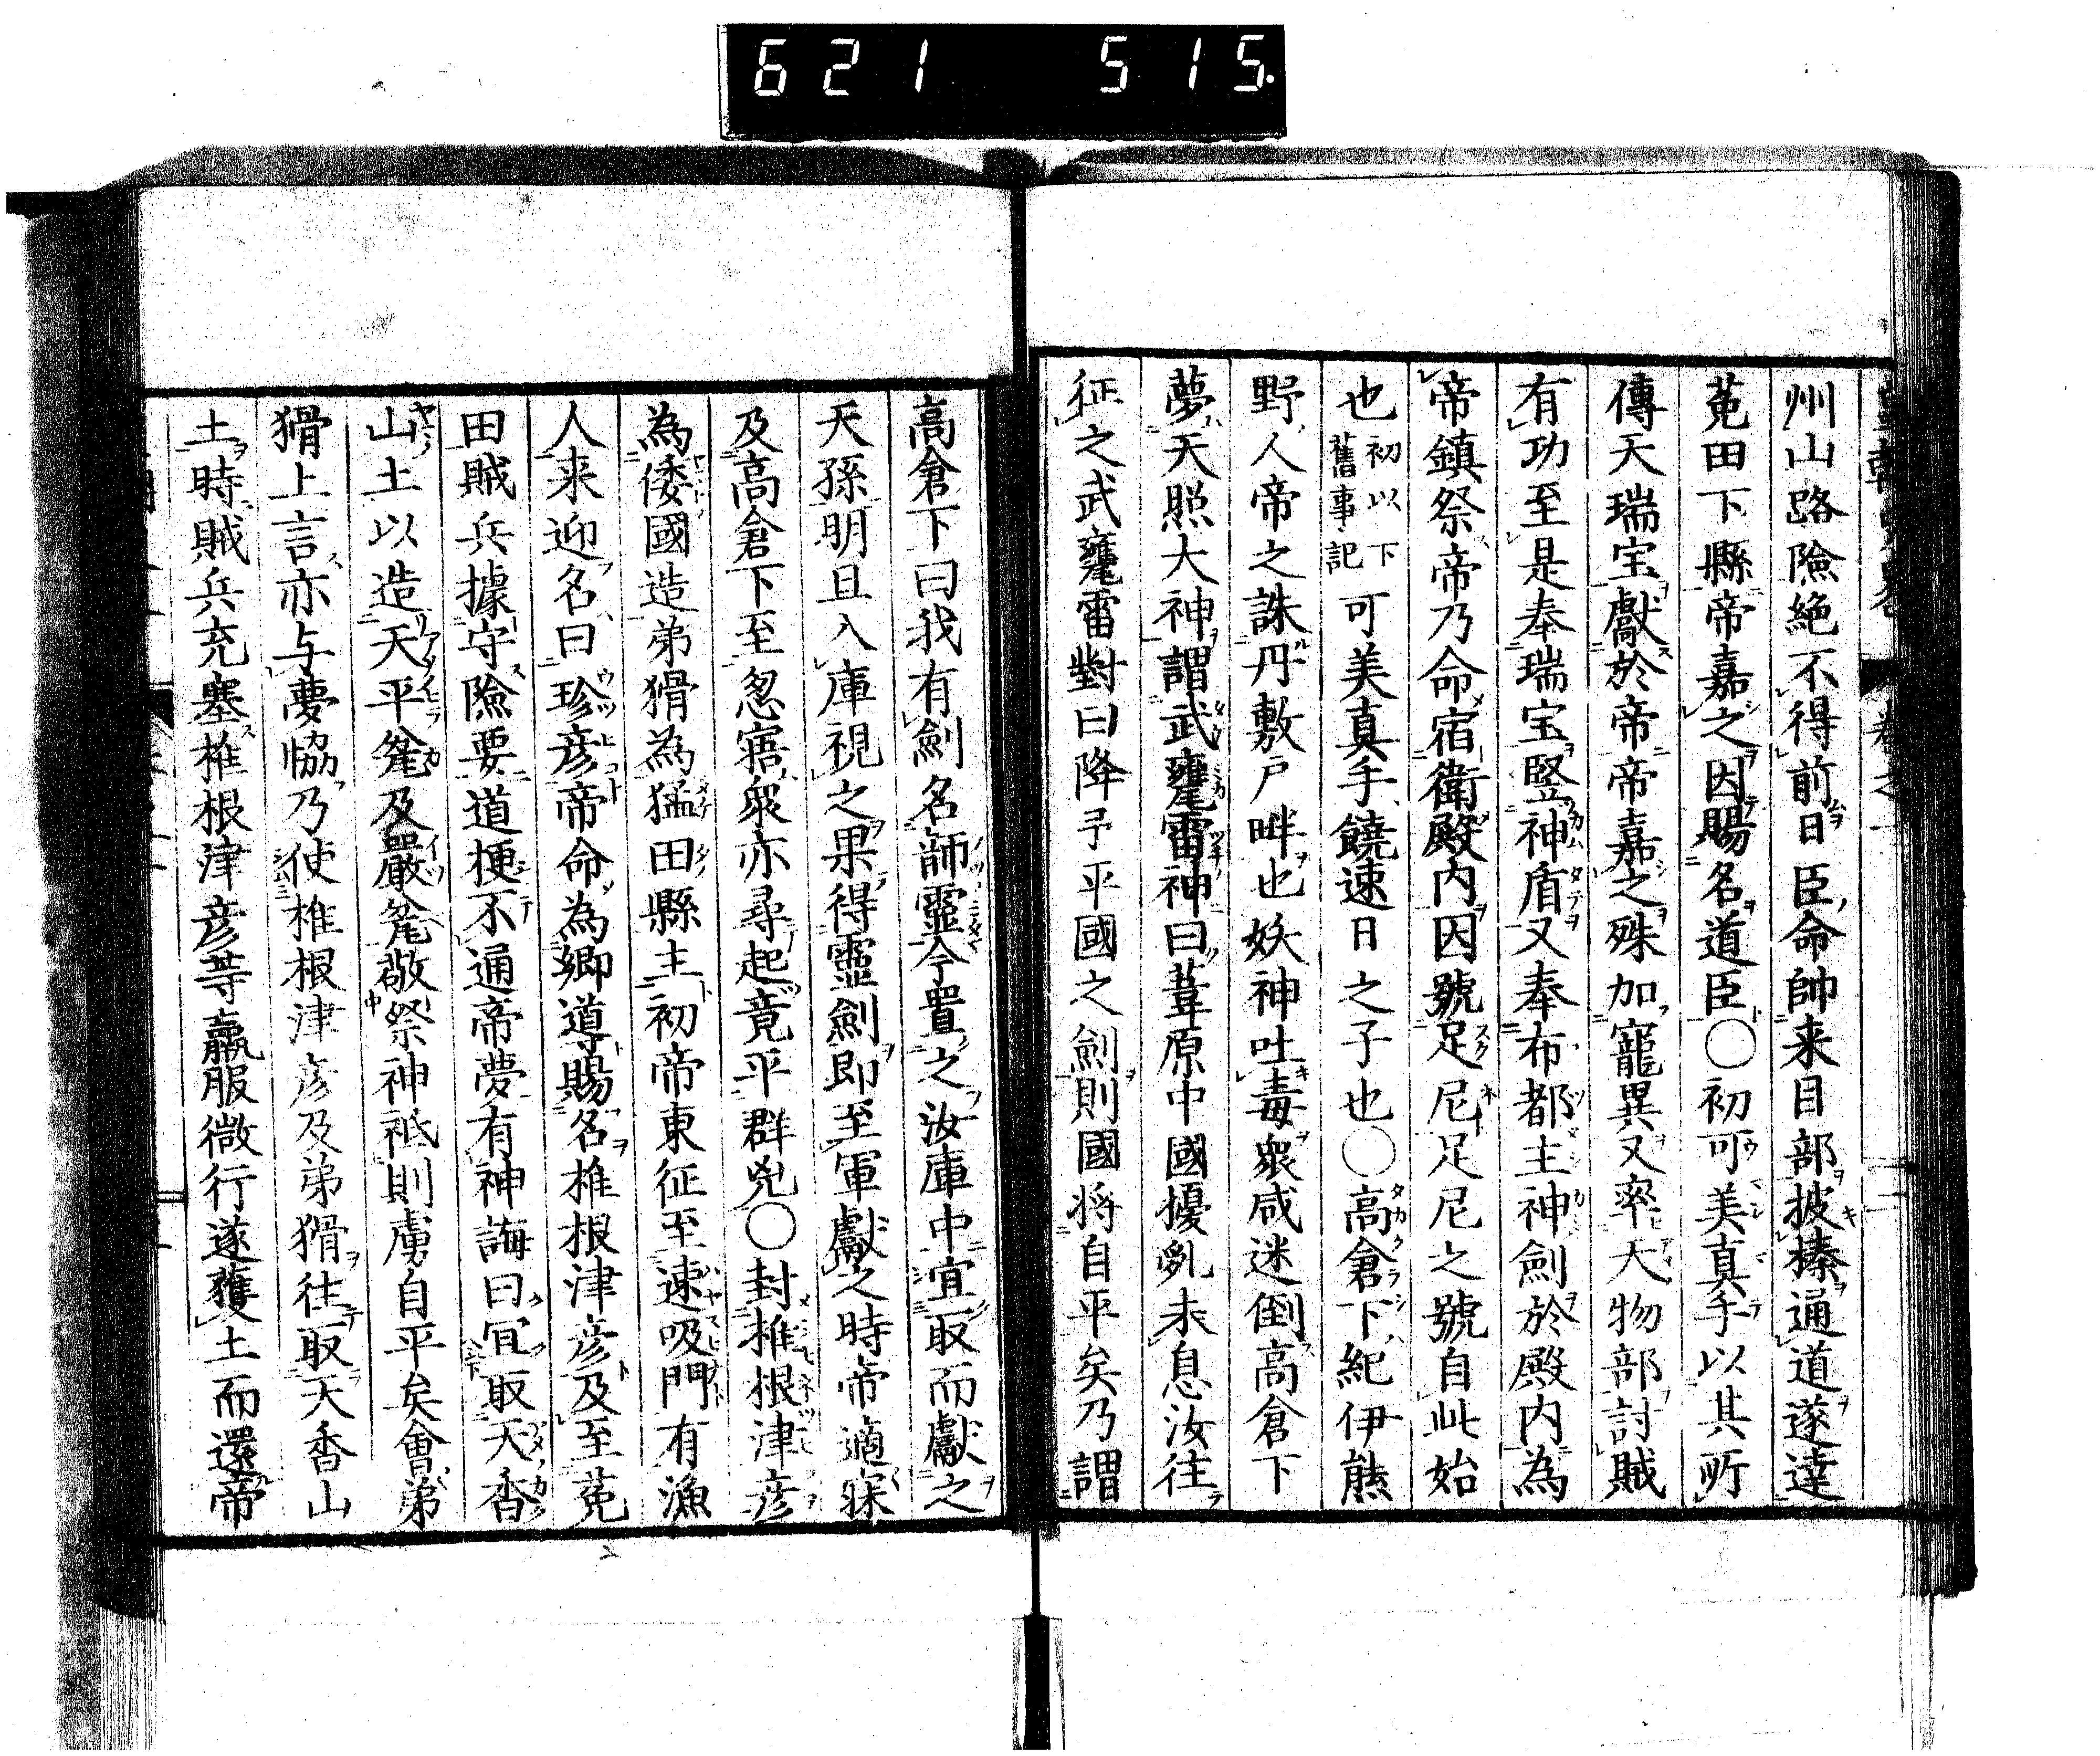 621 515.
州山路險絶不得前日臣命帥来目部披榛通道遂達
菟田下縣帝嘉之因賜名道臣○初可美真手以其所
傳天瑞宝獻於帝帝嘉之殊加寵異又率天物部討賊
有功至是奉瑞宝竪神盾又奉布都主神劍於殿内為
帝鎮祭帝乃命宿衛殿内因號足尼足尼之號自此始
也初以下舊事記可美真手饒速日之子也○高倉下紀伊熊
野人帝之誅丹敷戸畔也妖神吐毒衆咸迷倒高倉下
夢天照大神謂武甕雷神曰葦原中國擾亂未息汝往
征之武甕雷對曰降予平國之劍則國将自平矣乃謂
高倉下曰我有劍名䪢靈今置之汝庫中宜取而獻之
天孫明旦入庫視之果得靈劍即至軍獻之時帝適寐
及高倉下至忽寤衆亦尋起竟平群兇○封椎根津彦
為倭國造弟猾為猛田縣主初帝東征至速吸門有漁
人来迎名曰珍彦帝命為郷導賜名椎根津彦及至菟
田賊兵據守險要道梗不通帝夢有神誨曰宜取天香
山土以造天平瓮及嚴瓮敬祭神祇則虜自平矣會弟
猾上言亦与夢恊乃使椎根津彦及弟猾往取天香山
土時賊兵充塞椎根津彦等羸服微行遂獲土而還帝